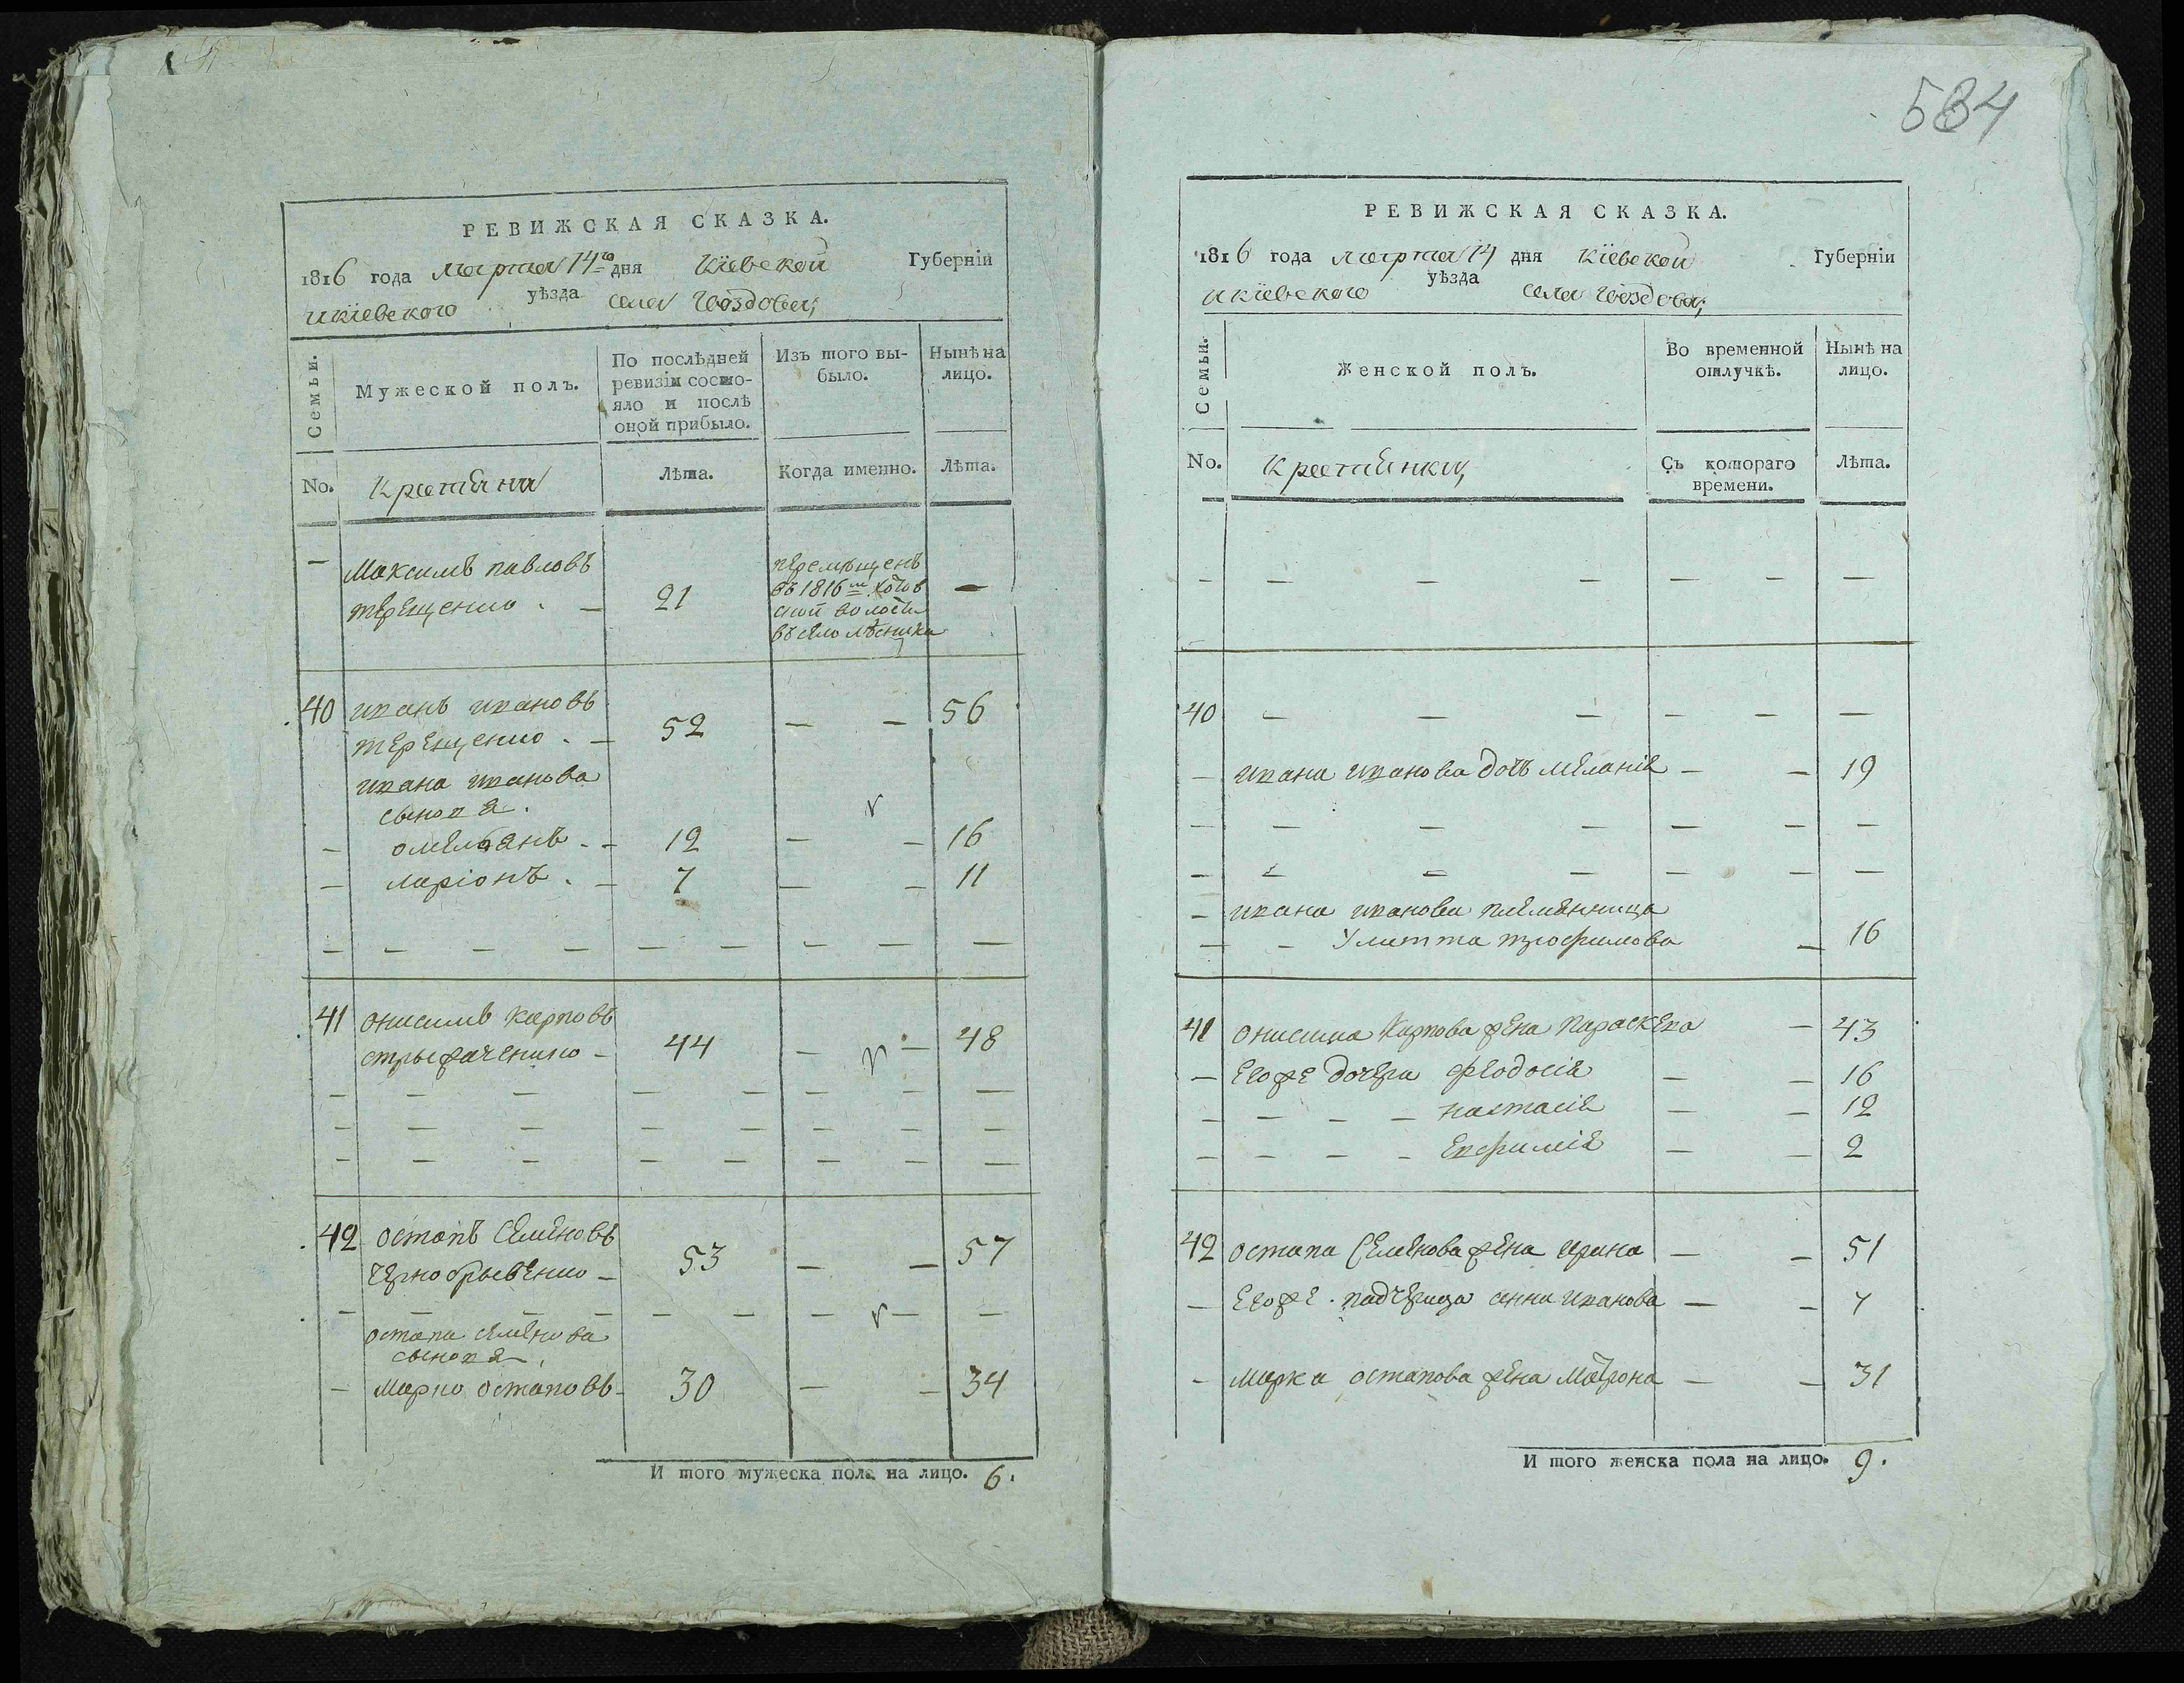 584
РЕВИЖСКАЯ СКАЗКА.
1816 года марта 14го дня Кіевской Губерніи
икіевского уѣзда села Гвоздова,
Семьи.
Мужеской полъ.
По послѣдней ревизіи состо-
яло и послѣ
оной прибыло.
Изъ того вы-
было.
Нынѣ на
лицо.
No.
Крестяня
Лѣта.
Когда именно.
Лѣта.
— Максимъ павловъ
терещенко . — 21 —
перемѣщенъ
въ 1816м хотов
ской волости
въ село лѣсники
40 иванъ ивановъ
терещенко . — 52 — — 56
ивана иванова
сыновя .
— омельянъ . — 12 — — 16
— ларіонъ . — 7 — — 11
— — — — — — — — —
41 онисимъ карповъ
стрыжаченко — 44 — — 48
— — — — — — — —
— — — — — — — —
— — — — — — — —
42 остапъ Семеновъ
чернобрывенко — 53 — — 57
— — — — — — — — —
остапа семенова
сыновя ,
— марко остаповъ — 30 — — 34
И того мужеска пола на лицо. 6.
РЕВИЖСКАЯ СКАЗКА.
1816 года марта 14 дня Кіевской Губерніи
икіевского уѣзда села Гвоздова,
Семьи.
Женской полъ.
Во временной
отлучкѣ.
Нынѣ на
лицо.
No.
Крестянки,
Съ котораго
времени.
Лѣта.
— — — — — — —
40 — — — — — —
— ивана иванова дочь меланія — — 19
— — — — — — —
— — — — — — —
— ивана иванова племенница
— — Улитта трофимова — 16
41 онисима Карпова жена параскева — 43
— его же дочери феодосія — — 16
— — — — настасія — — 12
— — — — евфимія — — 2
42 остапа Семенова жена ирина — — 51
— его же . падчерица анна иванова — — 7
— марка остапова жена матрона — — 31
И того женска пола на лицо. 9.